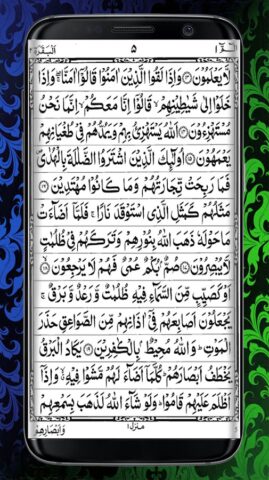 الٓمّٓ ١ ٥ البقرة ٢
لَا يَعْلَمُوْنَ ﴿۱۳﴾ وَاِذَا لَقُوا الَّذِيْنَ اٰمَنُوْا قَالُوْٓا اٰمَنَّا ۖۚ وَاِذَا
خَلَوْا اِلٰى شَيٰطِيْنِهِمْ ۙ قَالُوْٓا اِنَّا مَعَكُمْ ۙ اِنَّمَا نَحْنُ
مُسْتَهْزِءُوْنَ ﴿۱۴﴾ اَللّٰهُ يَسْتَهْزِئُ بِهِمْ وَيَمُدُّهُمْ فِيْ طُغْيَانِهِمْ
يَعْمَهُوْنَ ﴿۱۵﴾ اُولٰٓئِكَ الَّذِيْنَ اشْتَرَوُا الضَّلٰلَةَ بِالْهُدٰى ۪
فَمَا رَبِحَتْ تِّجَارَتُهُمْ وَمَا كَانُوْا مُهْتَدِيْنَ ﴿۱۶﴾
مَثَلُهُمْ كَمَثَلِ الَّذِى اسْتَوْقَدَ نَارًا ۚ فَلَمَّآ اَضَآءَتْ
مَا حَوْلَهٗ ذَهَبَ اللّٰهُ بِنُوْرِهِمْ وَتَرَكَهُمْ فِيْ ظُلُمٰتٍ
لَّا يُبْصِرُوْنَ ﴿۱۷﴾ صُمٌّۢ بُكْمٌ عُمْيٌ فَهُمْ لَا يَرْجِعُوْنَ ﴿۱۸﴾
اَوْ كَصَيِّبٍ مِّنَ السَّمَآءِ فِيْهِ ظُلُمٰتٌ وَّرَعْدٌ وَّبَرْقٌ ۚ
يَجْعَلُوْنَ اَصَابِعَهُمْ فِيْٓ اٰذَانِهِمْ مِّنَ الصَّوَاعِقِ حَذَرَ
الْمَوْتِ ؕ وَاللّٰهُ مُحِيْطٌۢ بِالْكٰفِرِيْنَ ﴿۱۹﴾ يَكَادُ الْبَرْقُ
يَخْطَفُ اَبْصَارَهُمْ ؕ كُلَّمَآ اَضَآءَ لَهُمْ مَّشَوْا فِيْهِ ۙۗ وَاِذَآ
اَظْلَمَ عَلَيْهِمْ قَامُوْا ؕ وَلَوْ شَآءَ اللّٰهُ لَذَهَبَ بِسَمْعِهِمْ
وَاَبْصَارِهِمْ
منزل ١